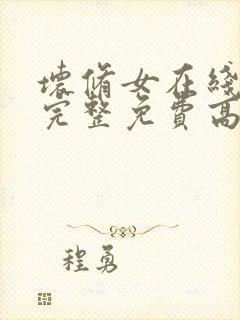 壞脩女在綫
完整免費高
程勇